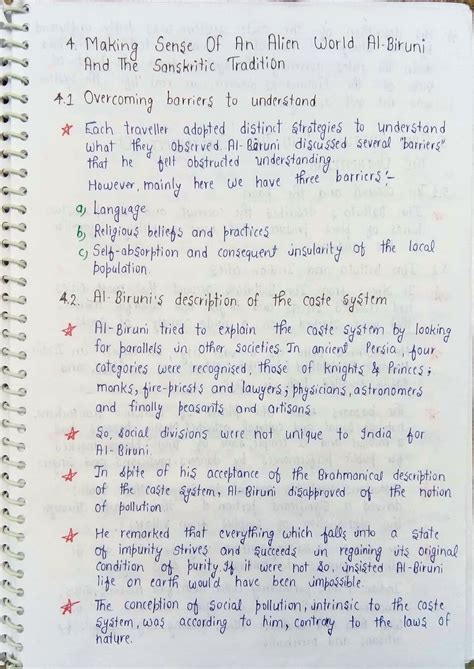 4. Making Sense Of An Alien World Al-Biruni
And The Sanskritic Tradition
4.1 Overcoming barriers to understand
Each traveller adopted distinct strategies to understand
what they observed. Al-Biruni discussed several "barriers"
that he felt obstructed understanding.
However, mainly here we have three barriers:-
a) Language
b) Religious beliefs and practices
c) Self-absorption and consequent insularity of the local
population.
4.2. Al-Biruni's description of the caste system
Al-Biruni tried to explain the caste system by looking
for parallels in other societies. In ancient Persia, four
categories were recognised, those of knights & Princes;
monks, fire-priests and lawyers; physicians, astronomers
and finally peasants and artisans.
So, social divisions were not unique to India for
Al-Biruni.
In spite of his acceptance of the Brahmanical description
of the caste system, Al-Biruni disapproved of the notion
of pollution.
He remarked that everything which falls into a state
of impurity strives and succeeds in regaining its original
condition of purity. If it were not so, insisted Al-Biruni
life on earth would have been impossible.
The conception of social pollution, intrinsic to the caste
system, was according to him, contrary to the laws of
nature.